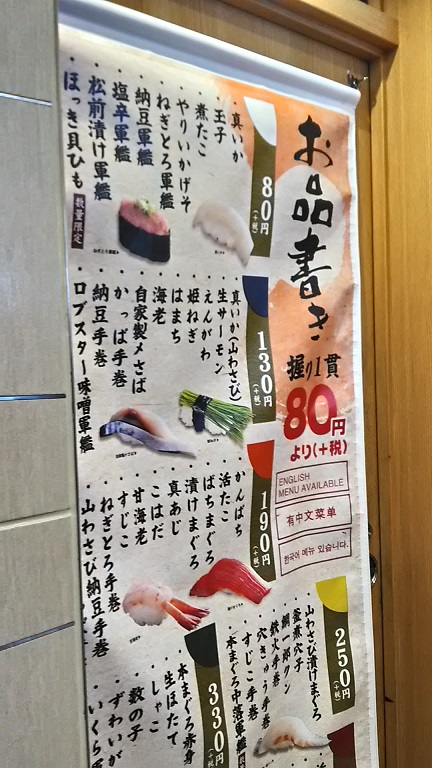 お品書き
握り1貫
80円
より(+税)
ENGLISH
MENU AVAILABLE
有中文菜单
한국어 메뉴 있습니다.
80円
(+税)
・真いか
・玉子
・煮たこ
・やりいかげそ
・ねぎとろ軍艦
・納豆軍艦
・塩辛軍艦
・松前漬け軍艦
・ほっき貝ひも
数量限定
130円
(+税)
・真いか(山わさび)
・生サーモン
・えんがわ
・姫ねぎ
・はまち
・海老
・自家製〆さば
・かっぱ手巻
・納豆手巻
・ロブスター味噌軍艦
190円
(+税)
・かんぱち
・活たこ
・ばちまぐろ
・漬けまぐろ
・真あじ
・こはだ
・甘海老
・すじこ
・ねぎとろ手巻
・山わさび納豆手巻
250円
(+税)
・山わさび漬けまぐろ
・釜煮穴子
・鯛一郎クン
・鉄火手巻
・穴きゅう手巻
・すじこ手巻
・本まぐろ中落軍艦
330円
・本まぐろ赤身
・生ほたて
・しゃこ
・数の子
・ずわいが
・いくら軍